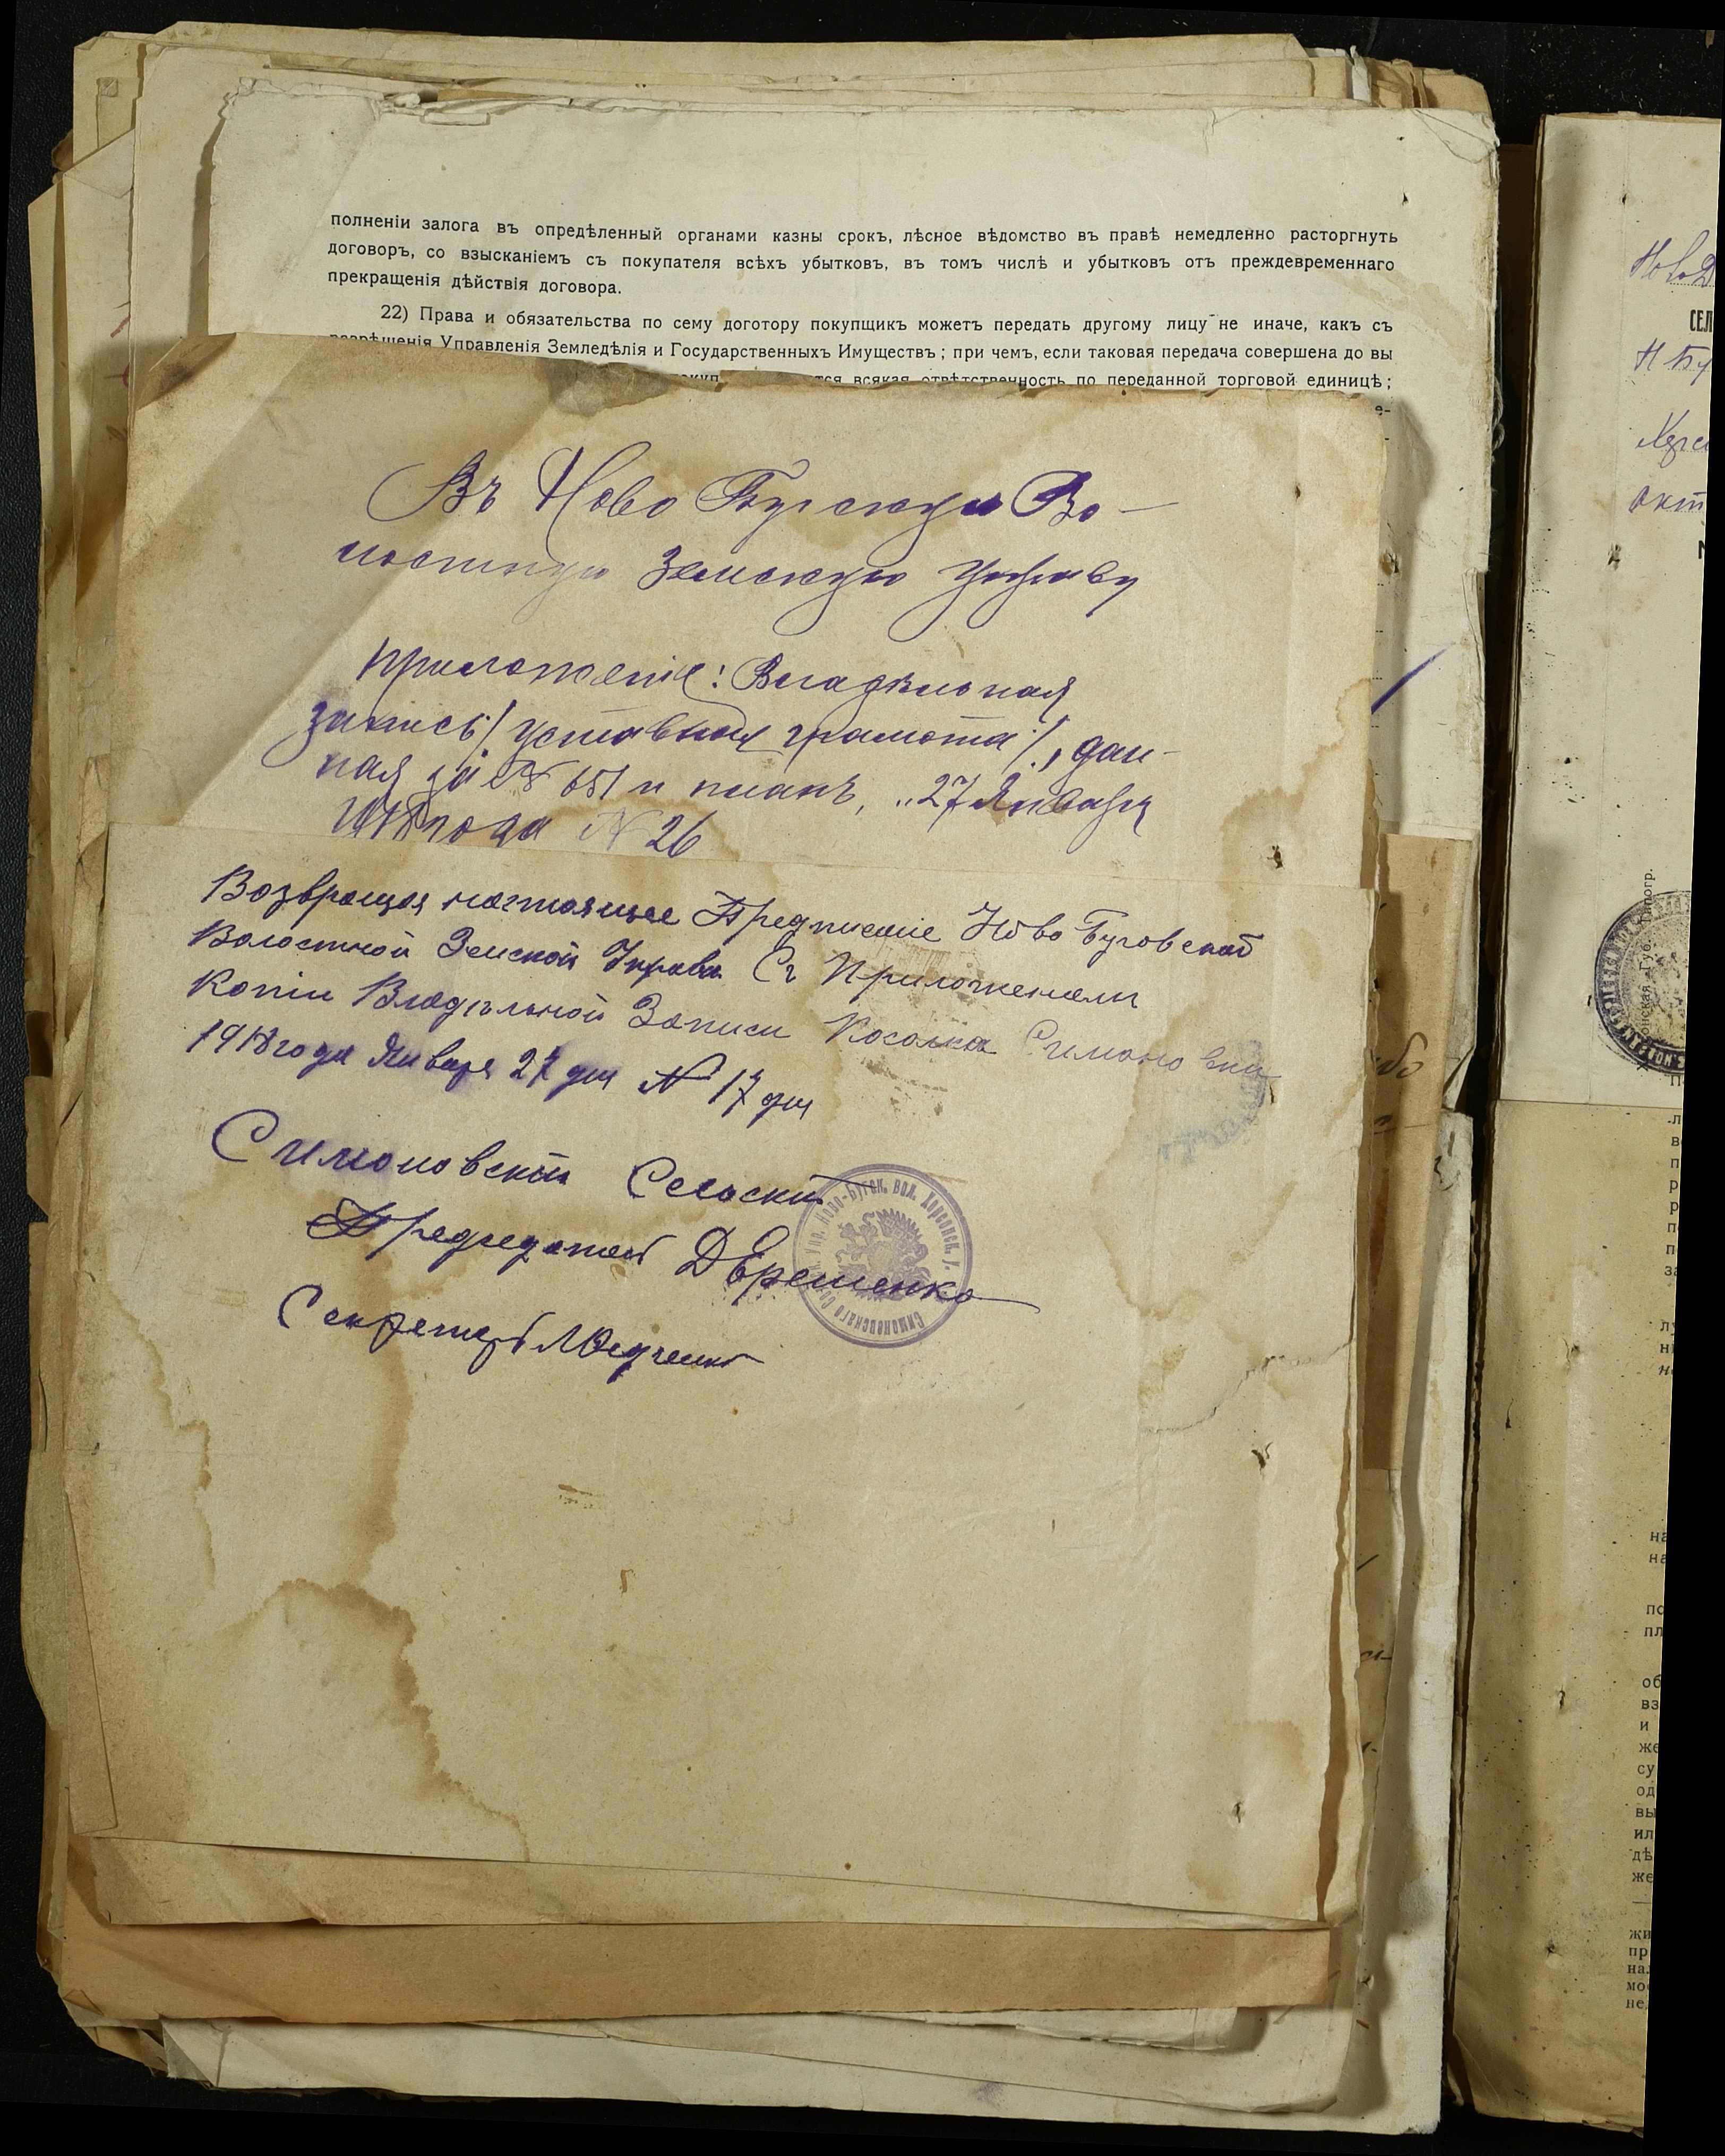 полненіи залога въ опредѣленный органами казны срокъ, лѣсное вѣдомство въ правѣ немедленно расторгнуть
договоръ, со взысканіемъ съ покупателя всѣхъ убытковъ, въ томъ числѣ и убытковъ отъ преждевременнаго
прекращенія дѣйствія договора.
22) Права и обязательства по сему доготору покупщикъ можетъ передать другому лицу не иначе, какъ съ
разрѣшенія Управленія Земледѣлія и Государственныхъ Имуществъ; при чемъ, если таковая передача совершена до вы
всякая отвѣтственность по переданной торговой единицѣ;
Въ Ново Бугскую Во-
лостную Земскую Управу
Приложеніе: Владѣльная
запись /уставная грамота/, дан-
ная за № 651 и планъ, „27 Января
1918 года № 26
Возвращая настоящее Предписаніе Ново Буговской
Волостной Земской Управы Съ Приложениемъ
Копіи Владѣльной Записи Поселка Симоновки
1918 года Января 27 дня № 17 дня
Симоновскій Сельскій
Председатель Д Еременко
Секретарь
Симоновскаго Сельск. Упр. Ново-Бугск. вол. Херсонск. у.
СЕЛ
Н Бу
Херс
окт
Типогр.
на
на
по
пл
об
вз
и
же
су
од
вы
ил
дѣ
же
жи
пр
нал
мо
не